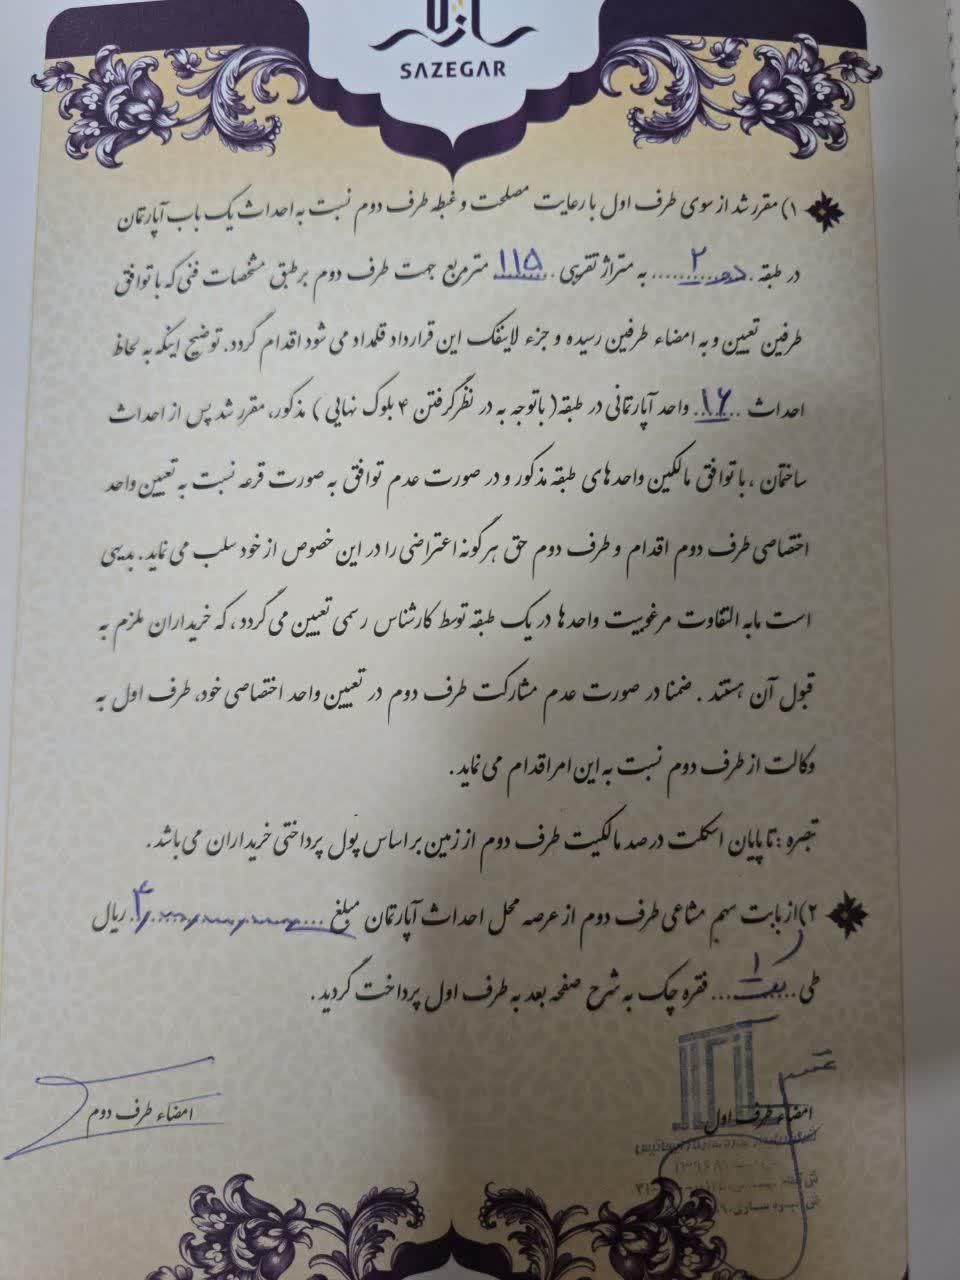 سازگر
SAZEGAR
۱) مقرر شد از سوی طرف اول با رعایت مصلحت و غبطه طرف دوم نسبت به احداث یک باب آپارتمان
در طبقه ...دو ۲... به متراژ تقریبی ..۱۱۵.. مترمربع جهت طرف دوم برطبق مشخصات فنی که با توافق
طرفین تعیین و به امضاء طرفین رسیده و جزء لاینفک این قرارداد قلمداد می شود اقدام گردد. توضیح اینکه به لحاظ
احداث ..۱۶.. واحد آپارتمانی در طبقه( باتوجه به در نظرگرفتن ۴ بلوک نهایی ) مذکور، مقرر شد پس از احداث
ساختمان ، با توافق مالکین واحدهای طبقه مذکور و در صورت عدم توافق به صورت قرعه نسبت به تعیین واحد
اختصاصی طرف دوم اقدام و طرف دوم حق هرگونه اعتراضی را در این خصوص از خود سلب می نماید . بدیهی
است مابه التفاوت مرغوبیت واحدها در یک طبقه توسط کارشناس رسمی تعیین می گردد ، که خریداران ملزم به
قبول آن هستند . ضمنا در صورت عدم مشارکت طرف دوم در تعیین واحد اختصاصی خود، طرف اول به
وکالت از طرف دوم نسبت به این امر اقدام می نماید .
تبصره : تا پایان اسکلت درصد مالکیت طرف دوم از زمین براساس پول پرداختی خریداران می باشد .
۲) از بابت سهم مشاعی طرف دوم از عرصه محل احداث آپارتمان مبلغ ... ریال
طی ... ۱ ... فقره چک به شرح صفحه بعد به طرف اول پرداخت گردید .
امضاء طرف اول
امضاء طرف دوم